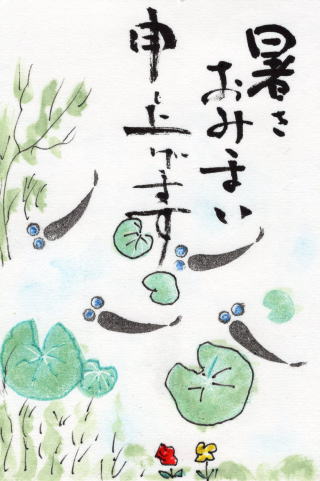 暑さ
おみまい
申し上げます